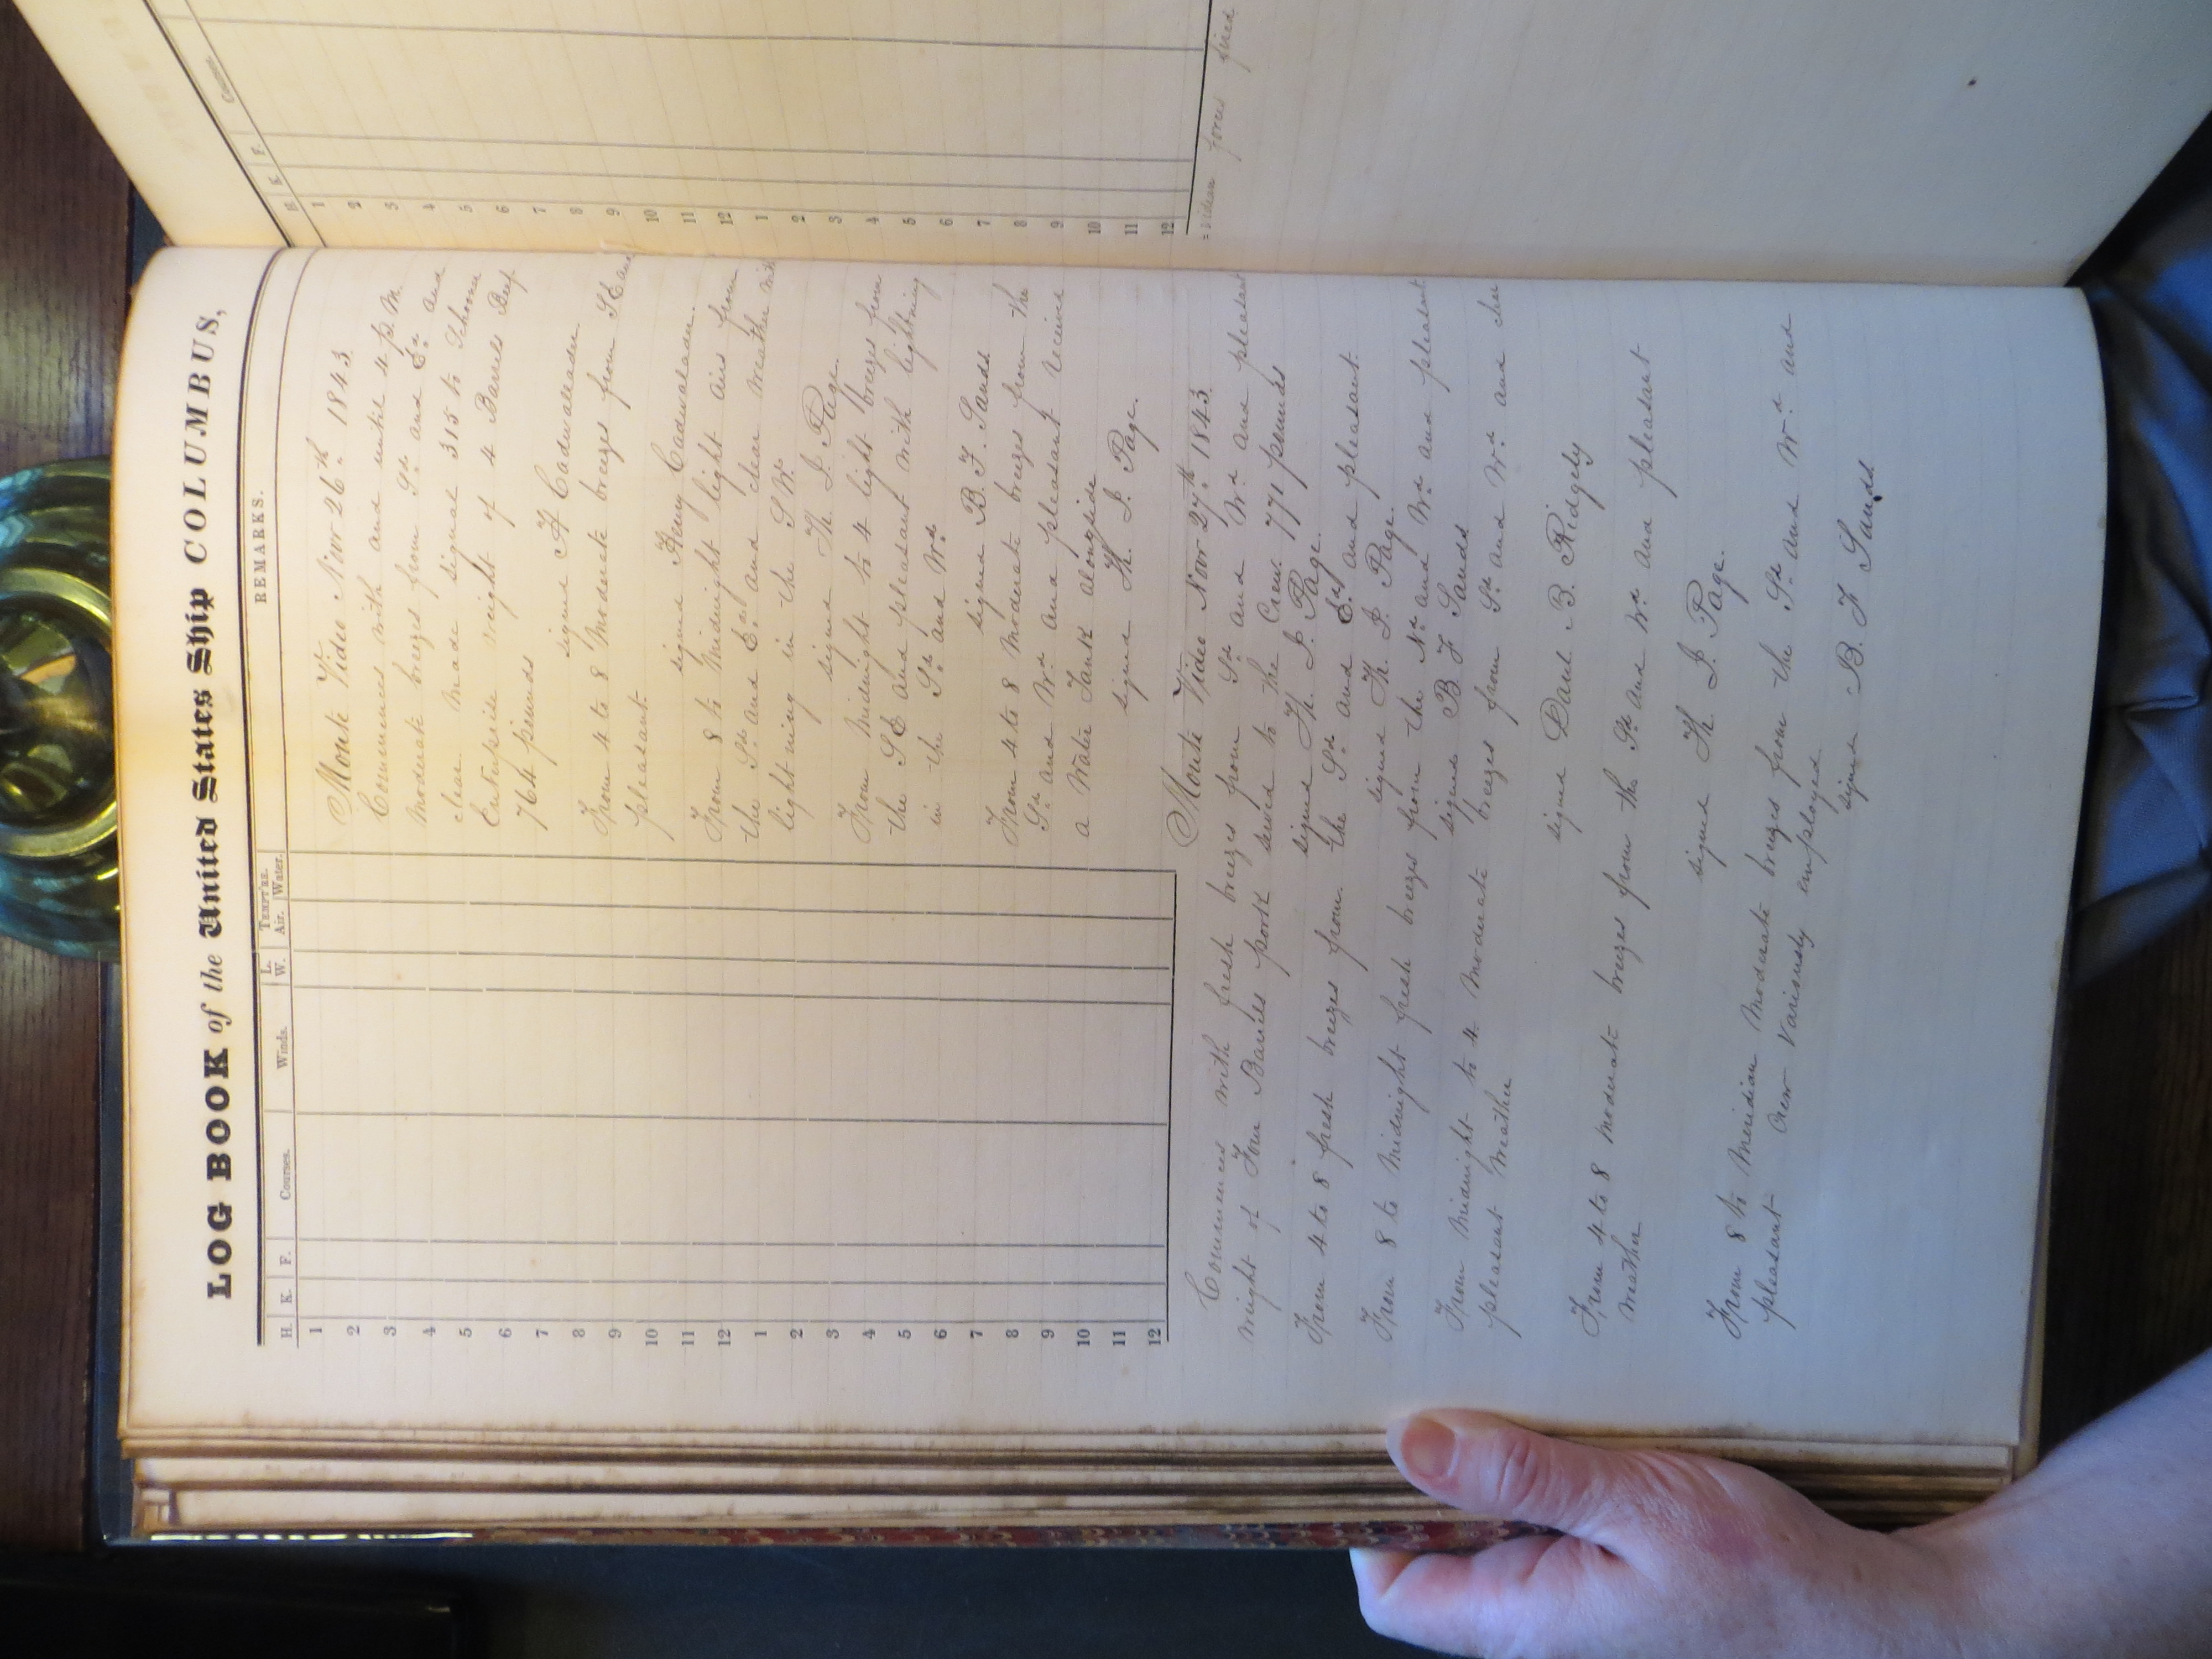 LOG BOOK of the United States Ship COLUMBUS,
H. K. F. Courses. Winds. L. W. TEMPT'RE. Air. Water. REMARKS.
1
2
3
4
5
6
7
8
9
10
11
12
1
2
3
4
5
6
7
8
9
10
11
12
Monte Video Novr 26th. 1843.
Commences with and until 4 p.M.
Moderate breezes from Sd. and Ed. and
clear. Made signal 315 to Schoone
Enterprise weight of 4 Barrels Beef
764 pounds
signed H Cadwalader
From 4 to 8 Moderate breezes from SE and
pleasant.
signed Henry Cadwalader.
From 8 to Midnight light airs from
the Sd. and Ed. and clear weather with
lightning in the SW.
signed Th. J. Page.
From Midnight to 4 light breezes from
the SE and pleasant with lightning
in the Sd. and Wd.
signed B. F. Sands
From 4 to 8 Moderate breezes from the
Sd. and Wd. and pleasant received
a Water Tank alongside
signed Th. J. Page.
Monte Video Novr 27th. 1843.
Commences with fresh breezes from Sd. and Wd. and pleasant
weight of Four Barrels pork served to the Crew. 771 pounds
signed Th. J. Page.
From 4 to 8 fresh breezes from the Sd. and Ed. and pleasant.
signed Th. J. Page.
From 8 to Midnight fresh breezes from the Nd. and Wd. and pleasant
signed B. F Sands
From Midnight to 4 Moderate breezes from Sd. and Wd. and clear
pleasant weather
signed Danl. B. Ridgely
From 4 to 8 Moderate breezes from the Sd. and Wd. and pleasant
weather
signed Th J. Page.
From 8 to Meridian Moderate breezes from the Sd. and Wd. and
pleasant Crew Variously employed.
signed B. F Sands
H. K. F. Courses
1
2
3
4
5
6
7
8
9
10
11
12
1
2
3
4
5
6
7
8
9
10
11
12
fired